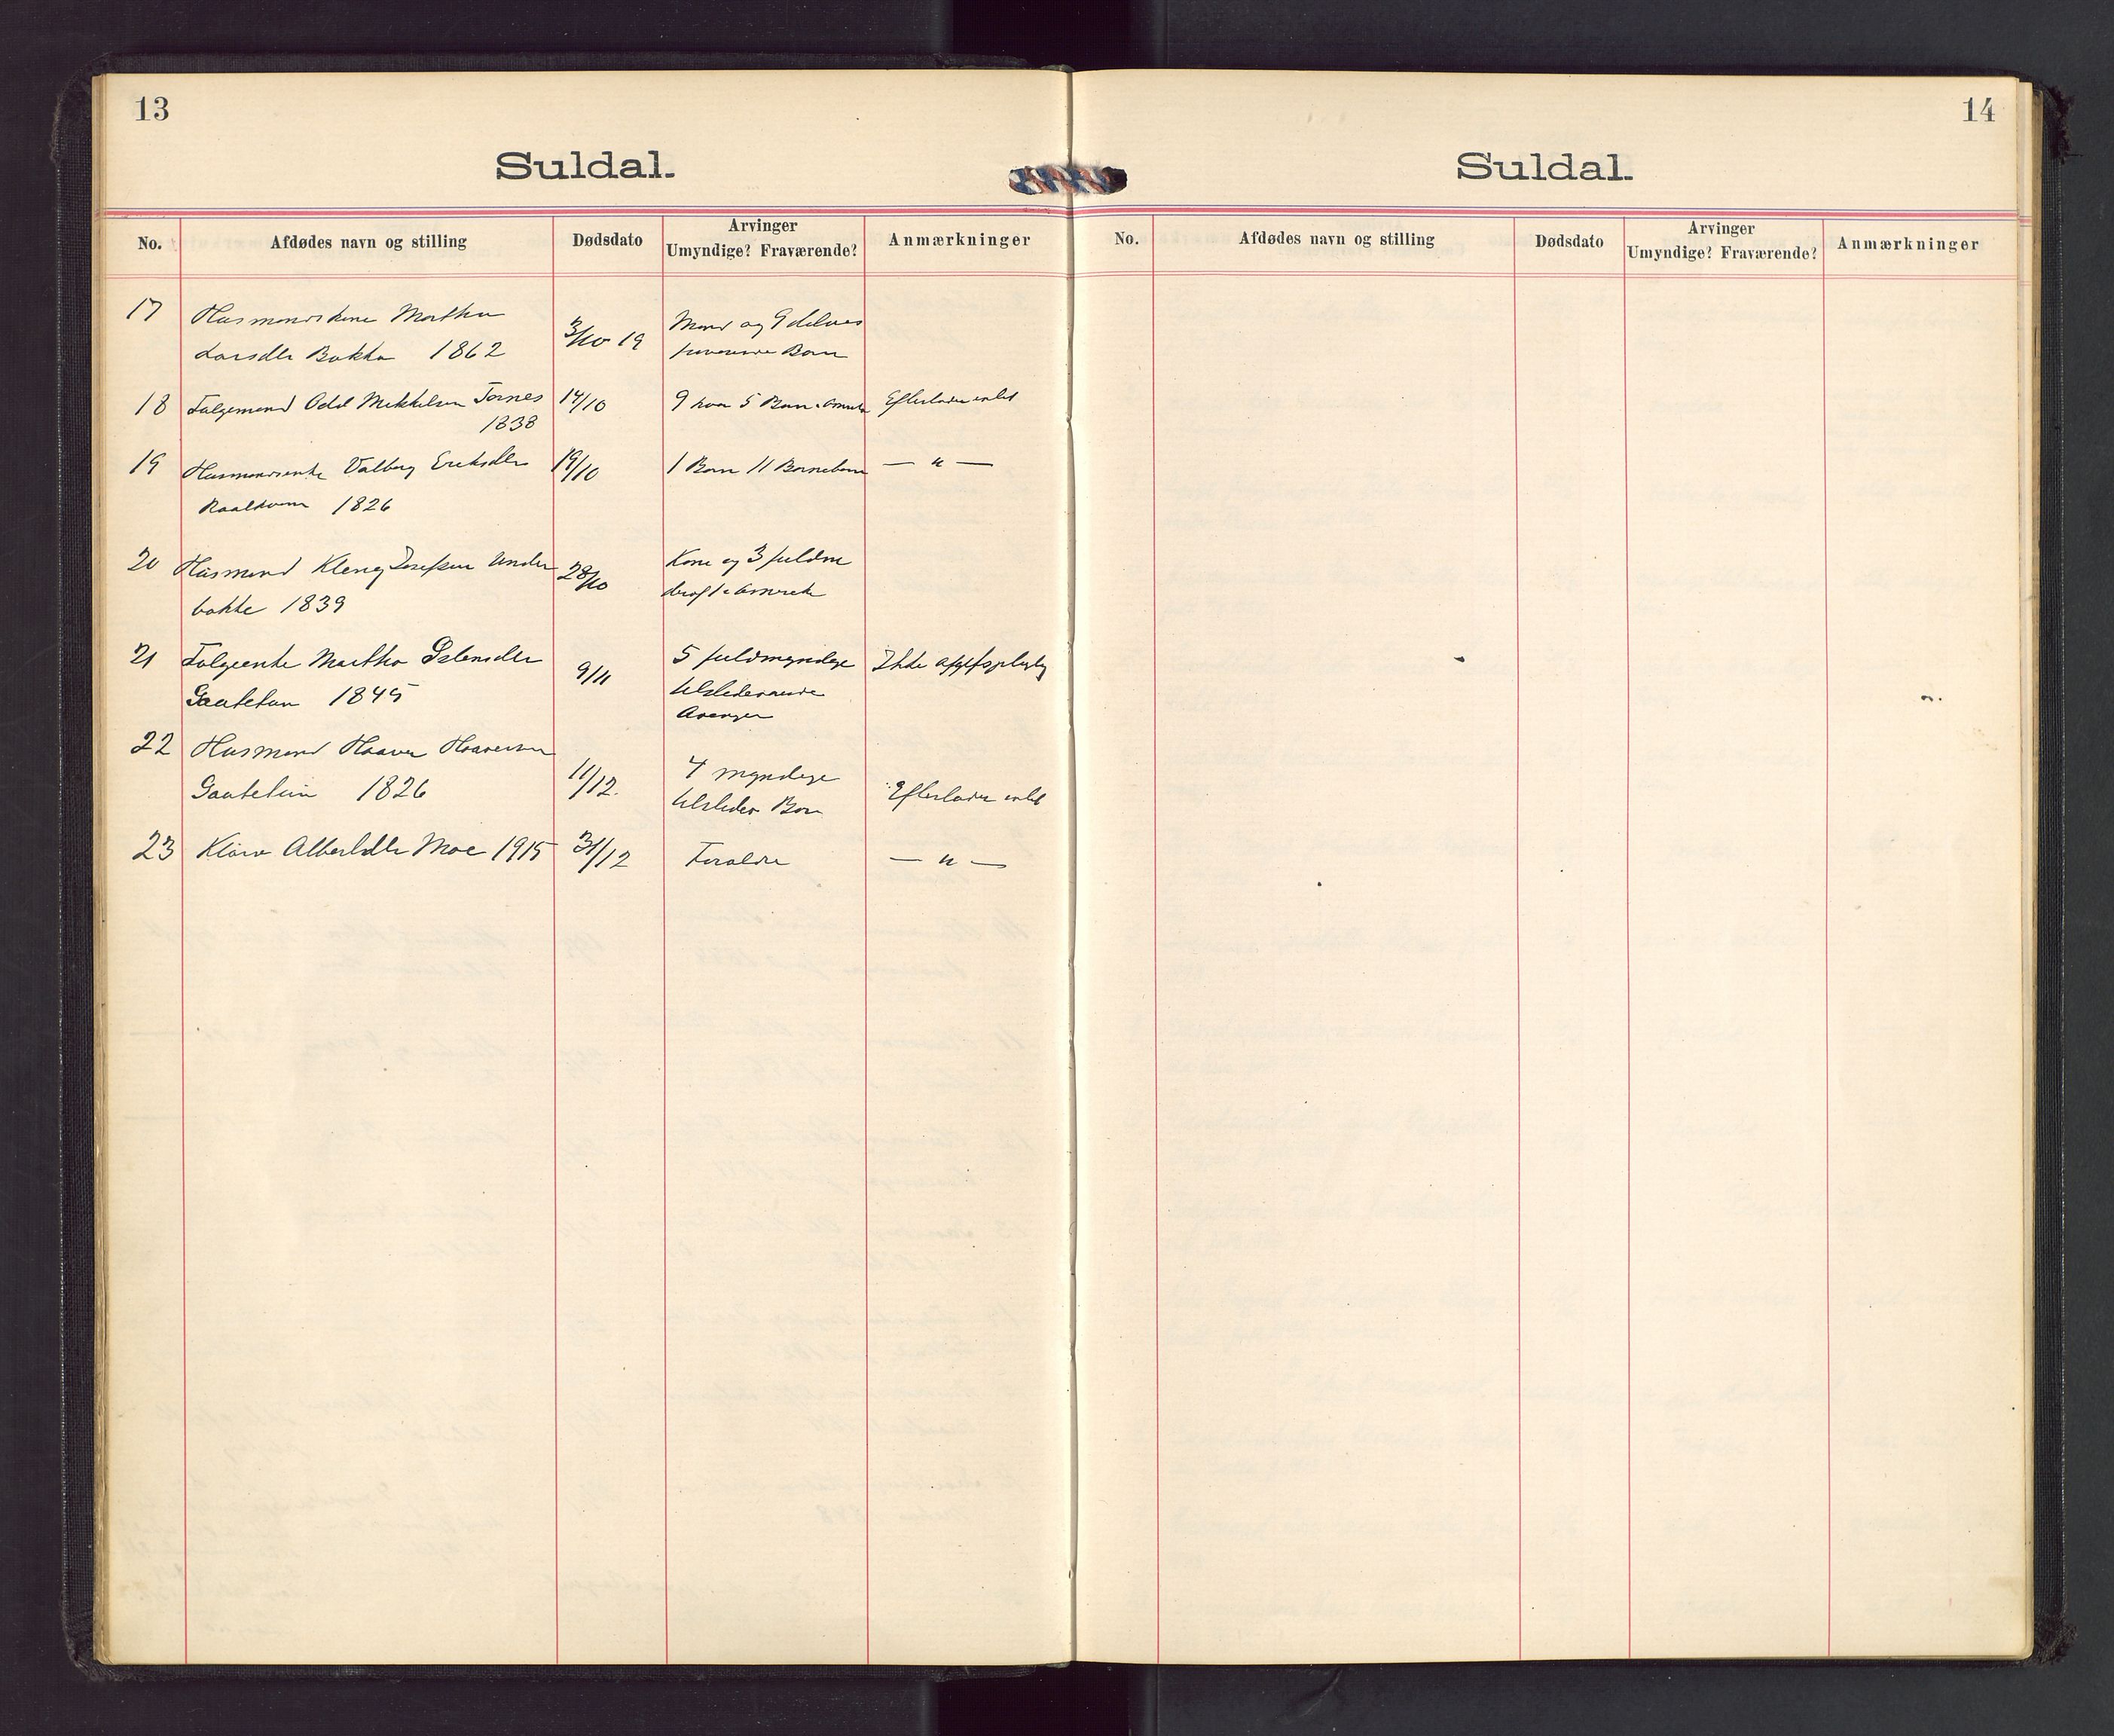 13
Suldal.
No. Afdødes navn og stilling Dødsdato Arvinger Umyndige? Fraværende? Anmærkninger
17 Husmandskone Martha
Larsdtr Bakka 1862 3/10 19 Mand og 9 delvis
Børn
18 Følgemand Odd Mikkelsen Tornes 14/10 9 hvor 5 Børn i Amerika Efterlader intet
1838
19 Husmandsenke Valborg Eriksdtr 19/10 1 Barn 11 Barnebørn — " —
1826
20 Husmand Kleng Josefsen Under 28/10 Kone og 3 fuldm
bakke 1839 Amerika
21 Følgeenke Martha Gslensdtr 9/11 5 fuldmyndige Ikke afgiftspligtig
Gautetun 1845 tilstedeværende
Arvinger
22 Husmand Haaver Haaversen
Gautetun 1826 11/12. 4 myndige
tilsteder Børn Efterlader intet
23 Klara Albertsdtr Moe 1915 31/12 Forældre — " —
14
Suldal.
No. Afdødes navn og stilling Dødsdato Arvinger Umyndige? Fraværende? Anmærkninger